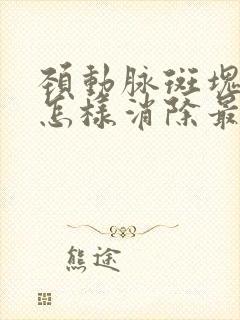 頸動脉斑塊
怎樣消除最
熊途